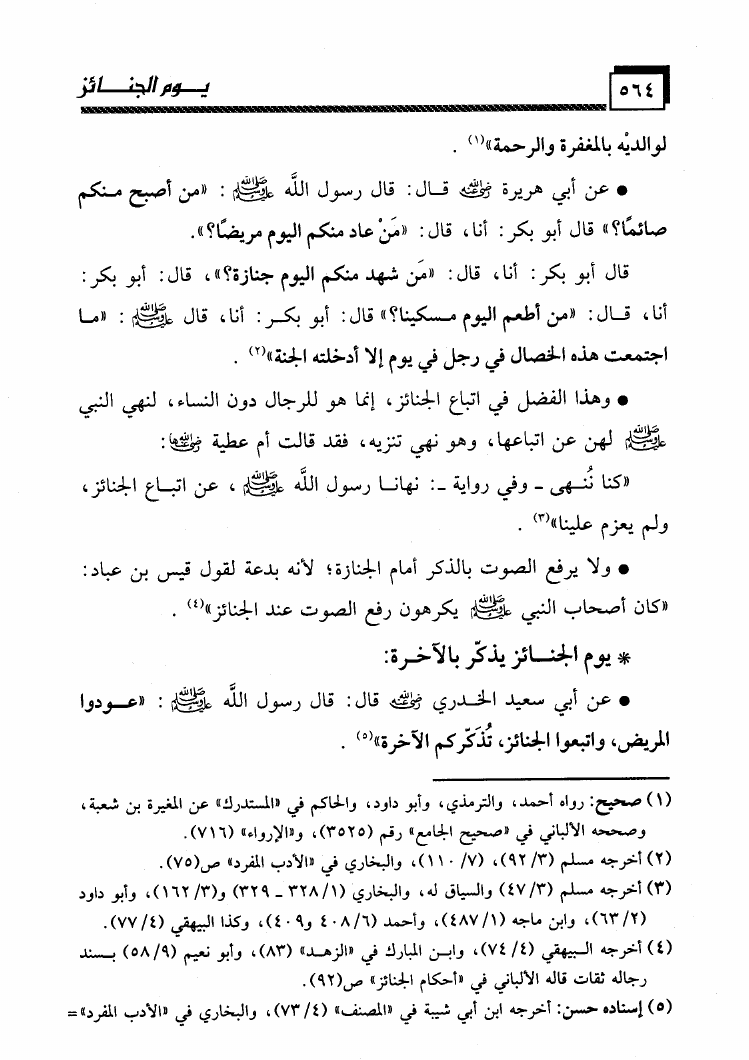 ٥٦٤
يـــوم الجنــــائز
لوالديْه بالمغفرة والرحمة»(١) .
● عن أبي هريرة رضي الله عنه قـال: قال رسول اللَّه ﷺ : «من أصبح مـنكم
صائمًا؟» قال أبو بكر: أنا، قال: «مَنْ عاد منكم اليوم مريضًا؟».
قال أبو بكر: أنا، قال: «مَن شهد منكم اليوم جنازة؟»، قال: أبو بكر:
أنا، قـال: «من أطعم اليوم مـسكينا؟» قال: أبو بكـر: أنا، قال ﷺ : «مـا
اجتمعت هذه الخصال في رجل في يوم إلا أدخلته الجنة»(٢) .
● وهذا الفضل في اتباع الجنائز، إنما هو للرجال دون النساء، لنهي النبي
ﷺ لهن عن اتباعها، وهو نهي تنزيه، فقد قالت أم عطية رضي الله عنها:
«كنا نُنـهى ـ وفي رواية ـ: نهانـا رسول اللَّه ﷺ ، عن اتبـاع الجنائز،
ولم يعزم علينا»(٣) .
● ولا يرفع الصوت بالذكر أمام الجنازة؛ لأنه بدعة لقول قيس بن عباد:
«كان أصحاب النبي ﷺ يكرهون رفع الصوت عند الجنائز»(٤) .
* يوم الجنــائز يذكّر بالآخـرة:
● عن أبي سعيد الخـدري رضي الله عنه قال: قال رسول اللَّه ﷺ : «عـودوا
المريض، واتبعوا الجنائز، تُذَكّركم الآخرة»(٥) .
(١) صحيح: رواه أحمد، والترمذي، وأبو داود، والحاكم في «المستدرك» عن المغيرة بن شعبة،
وصححه الألباني في «صحيح الجامع» رقم (٣٥٢٥)، و«الإرواء» (٧١٦).
(٢) أخرجه مسلم (٩٢/٣)، (١١٠/٧)، والبخاري في «الأدب المفرد» ص(٧٥).
(٣) أخرجه مسلم (٤٧/٣) والسياق له، والبخاري (٣٢٨/١ ـ ٣٢٩) و(١٦٢/٣)، وأبو داود
(٦٣/٢)، وابن ماجه (٤٨٧/١)، وأحمد (٤٠٨/٦ و٤٠٩)، وكذا البيهقي (٧٧/٤).
(٤) أخرجه الـبيهقي (٧٤/٤)، وابـن المبارك في «الزهـد» (٨٣)، وأبو نعيم (٥٨/٩) بـسند
رجاله ثقات قاله الألباني في «أحكام الجنائز» ص(٩٢).
(٥) إسناده حسن: أخرجه ابن أبي شيبة في «المصنف» (٧٣/٤)، والبخاري في «الأدب المفرد»=